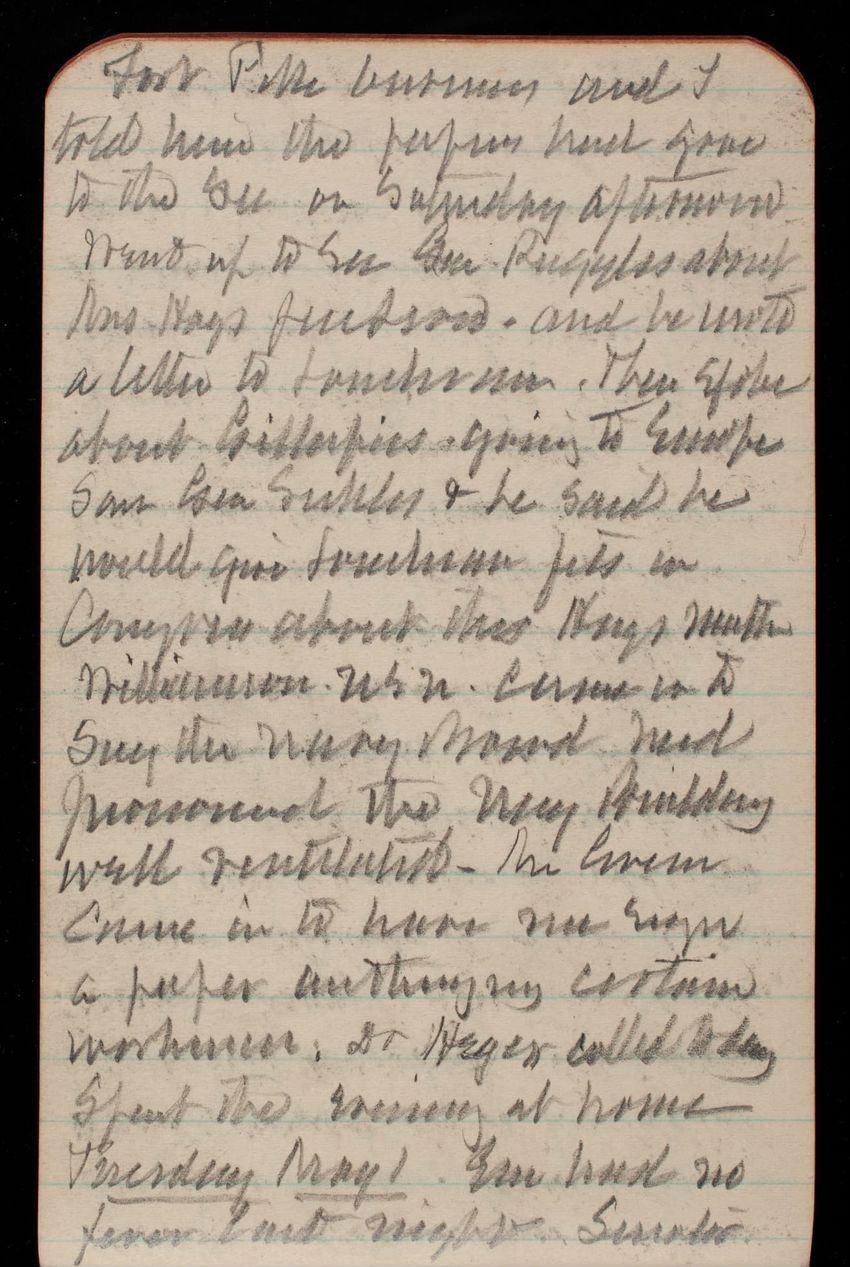 Fort Pike business and I
told him the papers had gone
to the Sec on Saturday afternoon
Went up to see Gen Ruggles about
Mrs Hays and he wrote
a letter to Then spoke
about Gillespies going to Europe
Saw Gen Sickles & he said he
would give fits in
Congress about this Hays matter
Williamson USN. came in to
say the Navy Board had
pronounced the Navy Building
well ventilated - Mr Green
came in to have me sign
a paper certain
workmen. Dr Heger called today
Spent the evening at home
Tuesday May 1 had no
fever last night. Senator